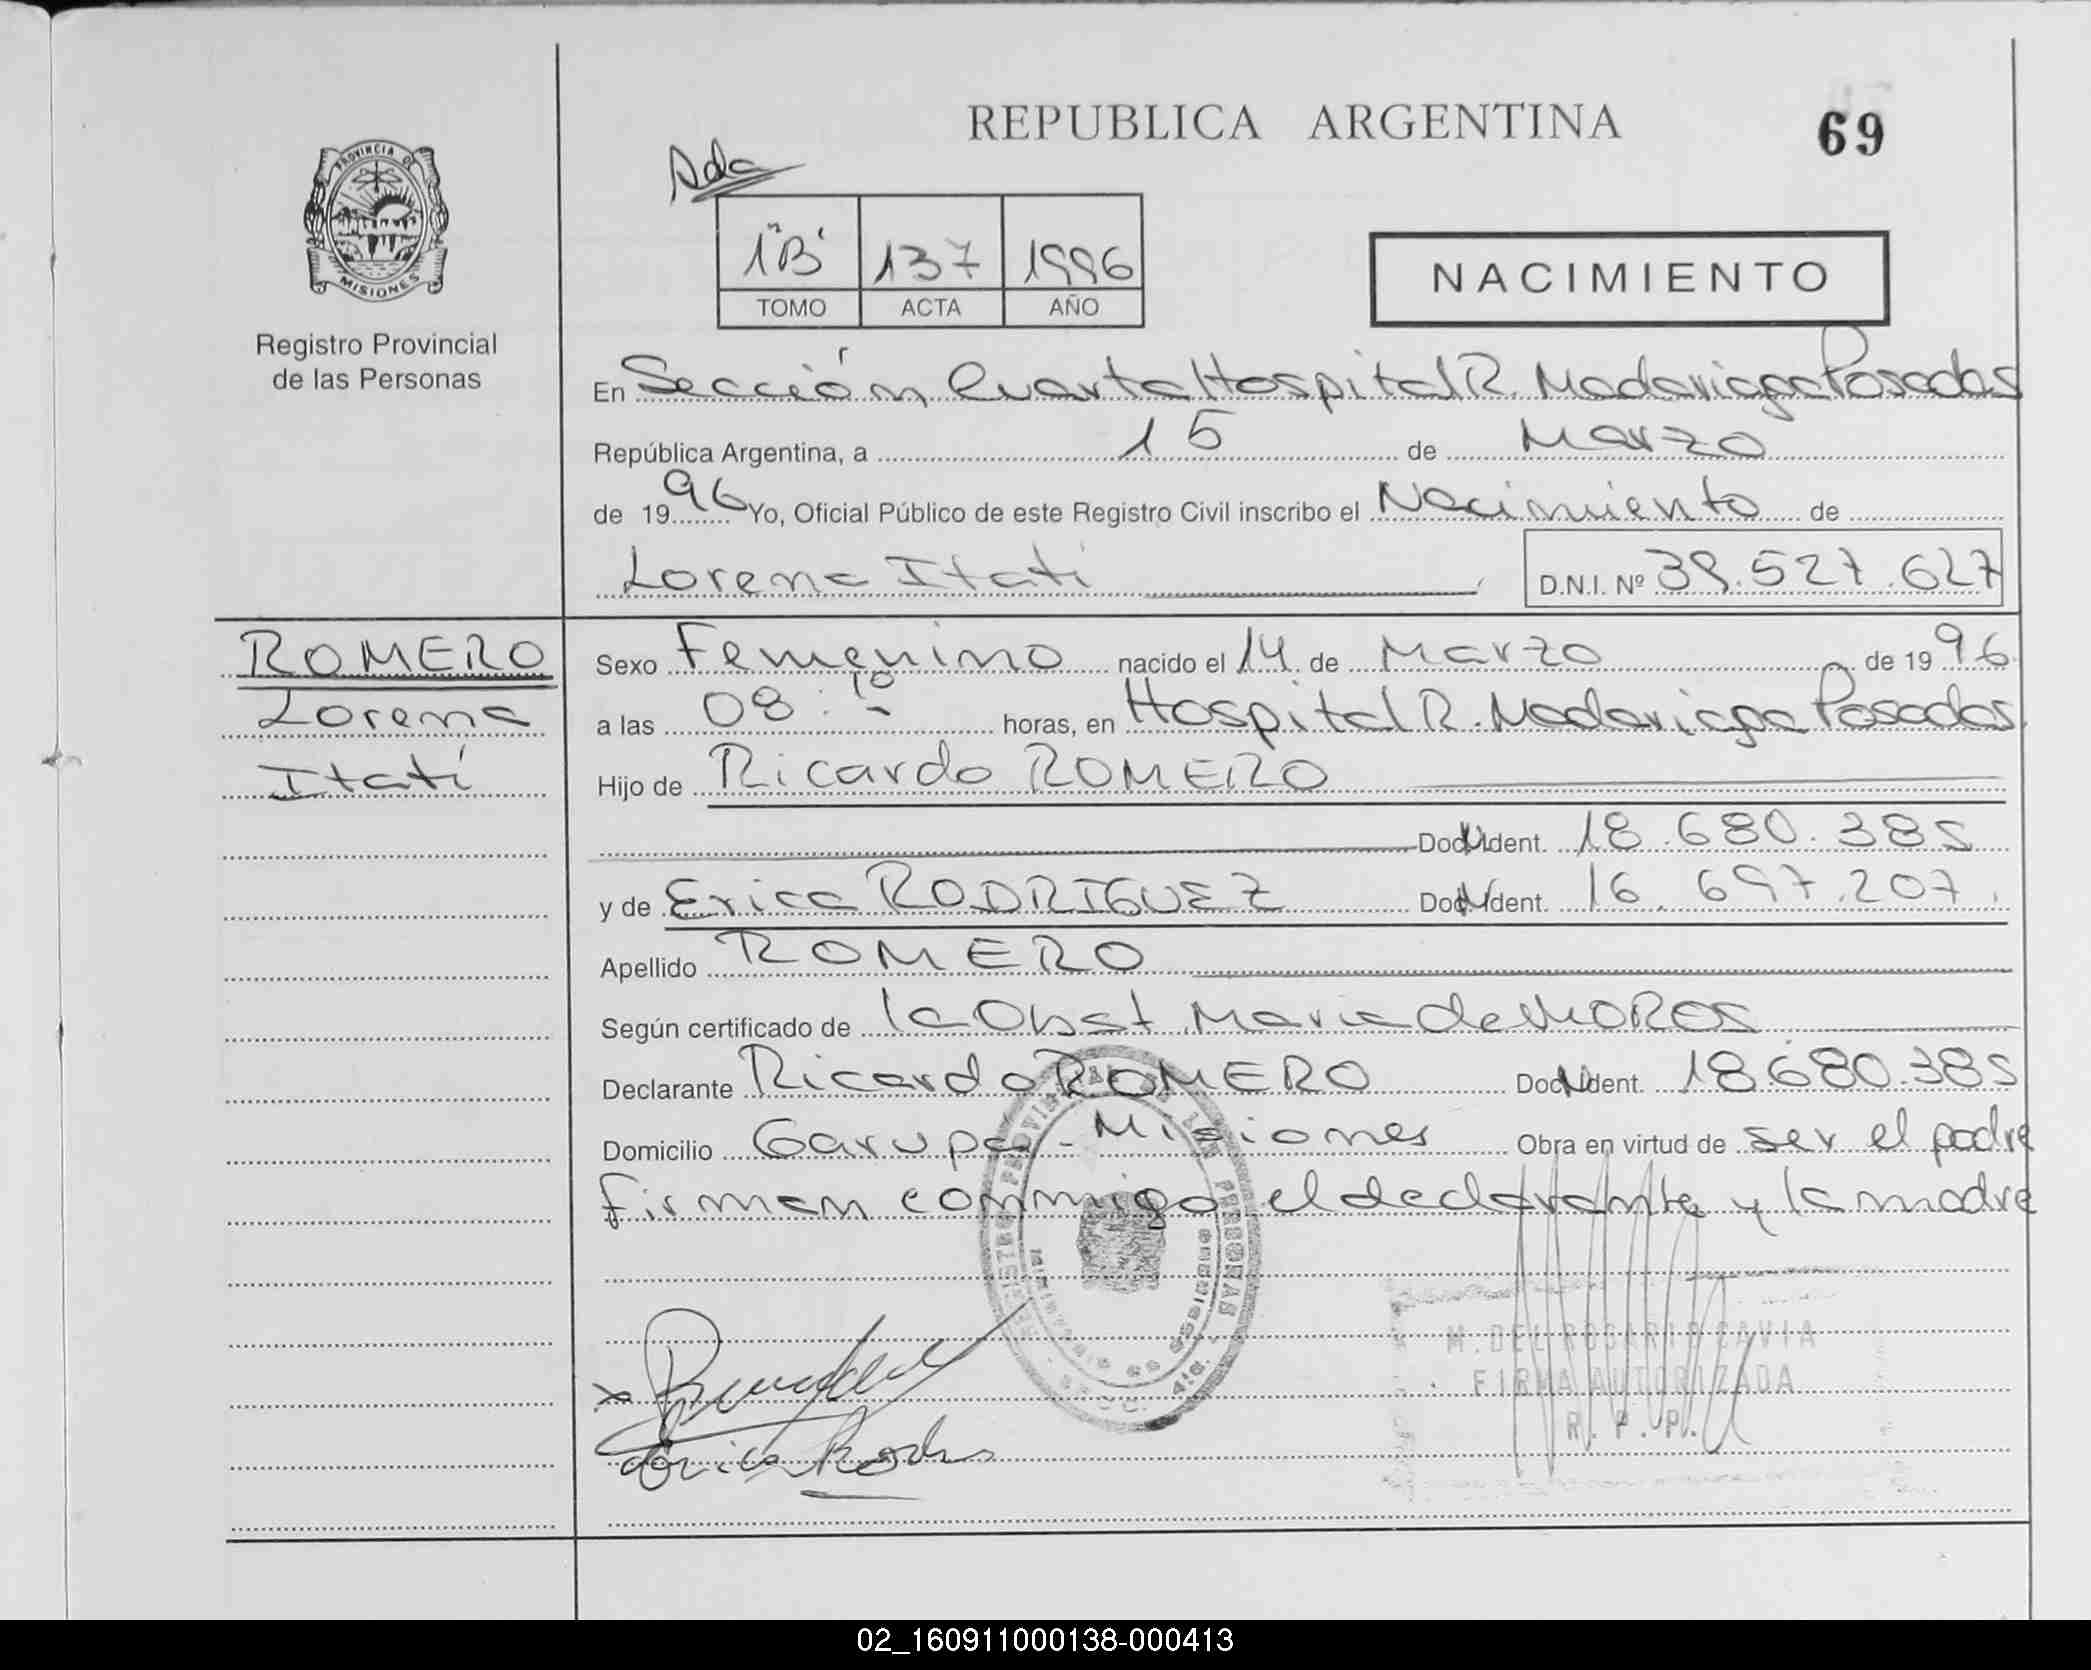 REPUBLICA ARGENTINA
69
Ada
PROVINCIA DE MISIONES
1º"B" 137 1996
TOMO ACTA AÑO
NACIMIENTO
Registro Provincial
de las Personas
En Sección Cuarta Hospital R. Madariaga Posadas
República Argentina, a 15 de Marzo
de 1996 Yo, Oficial Público de este Registro Civil inscribo el Nacimiento de
Lorena Itati D.N.I. Nº 39.527.627
ROMERO
Lorena
Itatí
Sexo Femenino nacido el 14 de Marzo de 1996
a las 08:10 horas, en Hospital R. Madariaga Posadas
Hijo de Ricardo ROMERO
Doc. Ident. 18.680.385
y de Erica RODRIGUEZ Doc. Ident. 16.697.207
Apellido ROMERO
Según certificado de la Obst Maria de MOROS
Declarante Ricardo ROMERO Doc. Ident. 18.680.385
Domicilio Garupa - Misiones Obra en virtud de ser el padre
firman conmigo el declarante y la madre
REGISTRO PROVINCIAL DE LAS PERSONAS
M. DEL ROSARIO CAVIA
FIRMA AUTORIZADA
R. P. P.
Erica
02_160911000138-000413